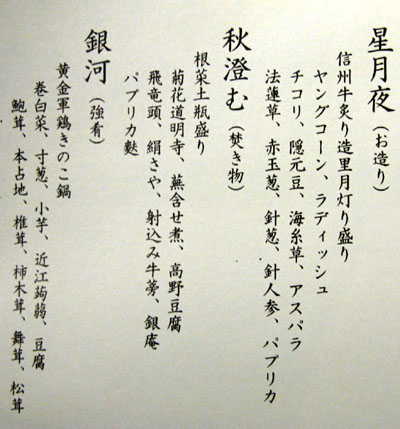 星月夜（お造り）
信州牛炙り造里月灯り盛り
ヤングコーン、ラディッシュ
チコリ、隠元豆、海糸草、アスパラ
法蓮草、赤玉葱、針葱、針人参、パプリカ
秋澄む（焚き物）
根菜土瓶盛り
菊花道明寺、蕪含せ煮、高野豆腐
飛竜頭、絹さや、射込み牛蒡、銀庵
パプリカ麩
銀河（強肴）
黄金軍鶏きのこ鍋
巻白菜、寸葱、小芋、近江蒟蒻、豆腐
鮑茸、本占地、椎茸、柿木茸、舞茸、松茸